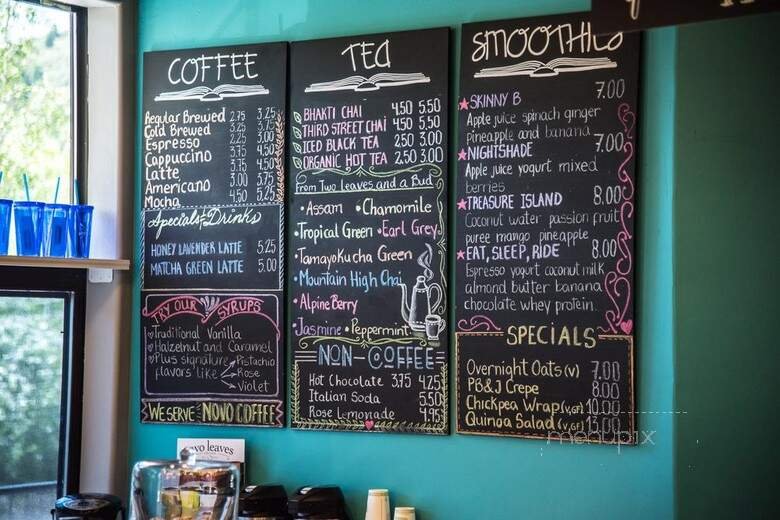 COFFEE
Regular Brewed 2.75 3.25
Cold Brewed 3.25
Espresso 2.25 3.00
Cappuccino 3.75
Latte 3.75 4.50
Americano 3.00 3.75
Mocha 4.50 5.25
Specials Drinks
HONEY LAVENDER LATTE 5.25
MATCHA GREEN LATTE 5.00
TRY OUR SYRUPS
Traditional Vanilla
Halzelnut and Caramel
Plus signature Pistachia
flavors like Rose
Violet
WE SERVE NOVO COFFEE
TEA
BHAKTI CHAI 4.50 5.50
THIRD STREET CHAI 4.50 5.50
ICED BLACK TEA 2.50 3.00
ORGANIC HOT TEA 2.50 3.00
From Two Leaves and a Bud
• Assam • Chamomile
• Tropical Green • Earl Grey
• Tamayokucha Green
• Mountain High Chai
• Alpine Berry
• Jasmine • Peppermint
NON-COFFEE
Hot Chocolate 3.75 4.25
Italian Soda 5.50
Rose Lemonade 4.95
SMOOTHIES
SKINNY B 7.00
Apple juice spinach ginger
pineapple and banana
NIGHTSHADE 7.00
Apple juice yogurt mixed
berries
TREASURE ISLAND 8.00
Coconut water passion fruit
puree mango pineapple
EAT, SLEEP, RIDE 8.00
Espresso yogurt coconut milk
almond butter banana
chocolate whey protein.
SPECIALS
Overnight Oats (V) 7.00
PB&J Crepe 8.00
Chickpea Wrap (V,GF) 10.00
Quinoa Salad (V,GF) 13.00
two leaves
menupix